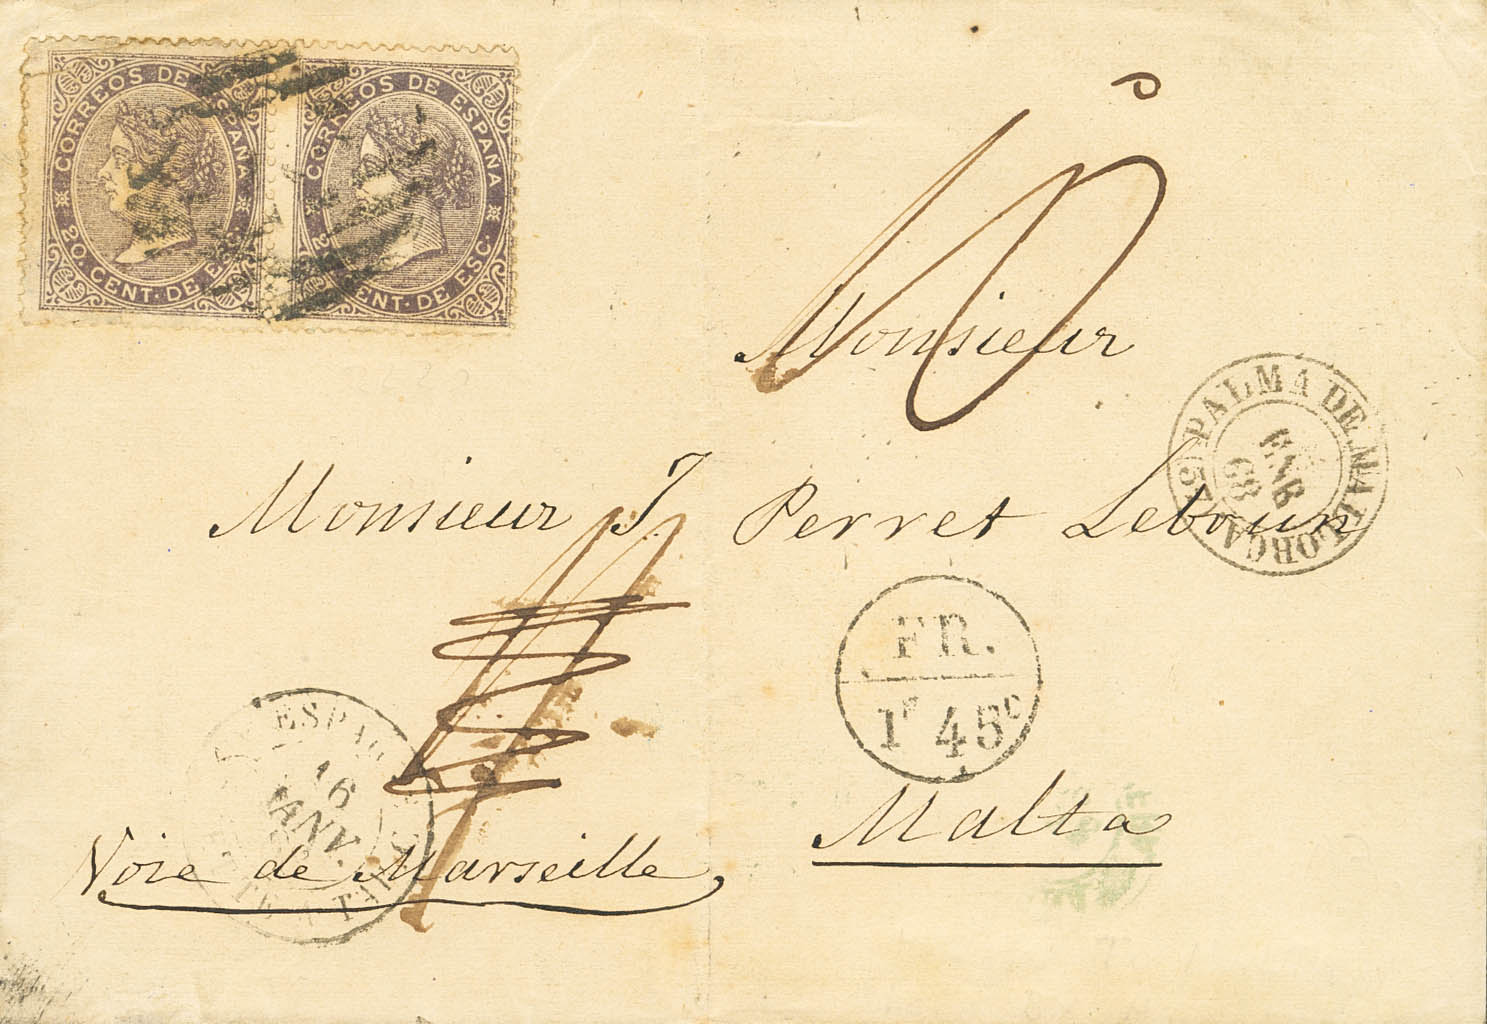 CORREOS DE ESPAÑA
20. CENT. DE ESC.
CORREOS DE ESPAÑA
2 ENT. DE ESC.
10
Monsieur
PALMA DE MALLORCA
ENE
68
Monsieur J Perret Leboun
FR.
1F 45C
ESPAG
16
JANV.
Malta
Voie de Marseille